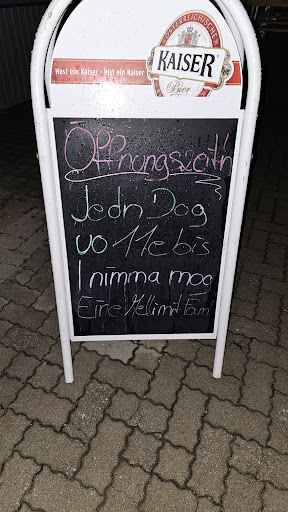 ÖSTERREICHISCHES
KAISER
Bier
Hast ein Kaiser - bist ein Kaiser
Öffnungszeit'n
Jedn Dog
vo 11e bis
I nimma mog
Eire Melli mit Fam